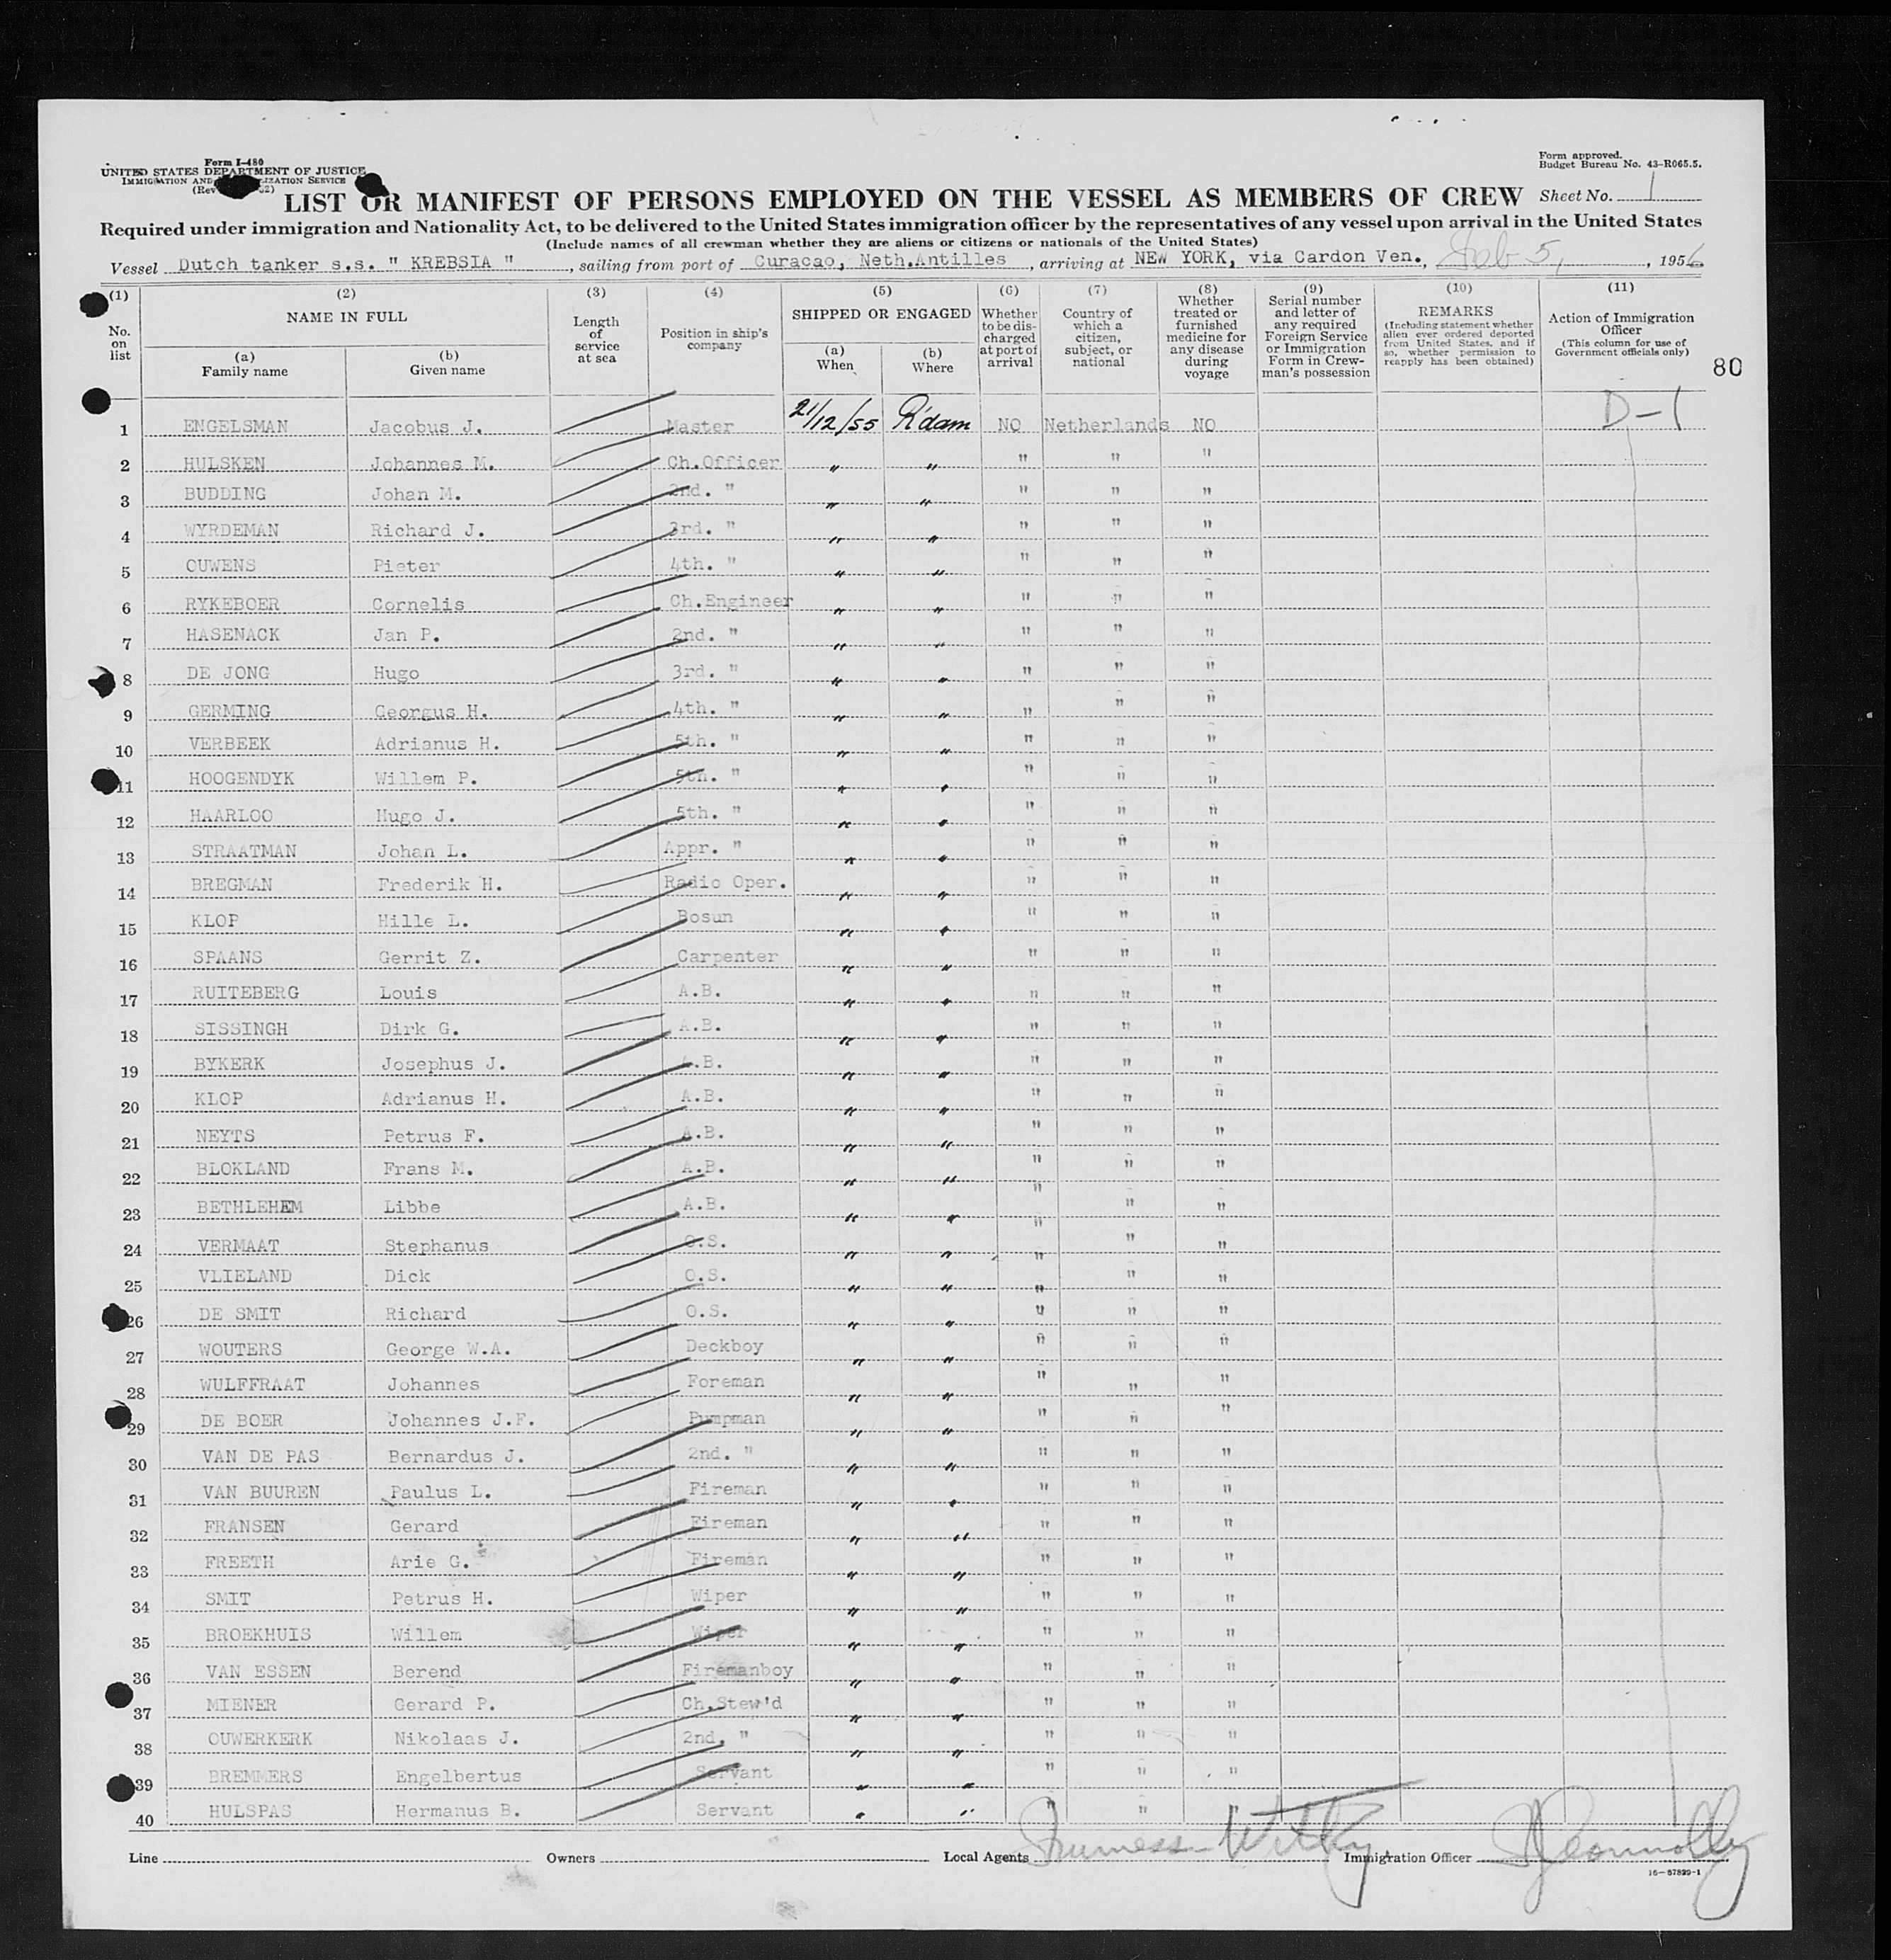 Form I-480
UNITED STATES DEPARTMENT OF JUSTICE
IMMIGRATION AND NATURALIZATION SERVICE
(Rev. 52)
Form approved.
Budget Bureau No. 43-R065.5.
LIST OR MANIFEST OF PERSONS EMPLOYED ON THE VESSEL AS MEMBERS OF CREW Sheet No. 1
Required under immigration and Nationality Act, to be delivered to the United States immigration officer by the representatives of any vessel upon arrival in the United States
(Include names of all crewman whether they are aliens or citizens or nationals of the United States)
Vessel Dutch tanker s.s. " KREBSIA ", sailing from port of Curacao, Neth.Antilles, arriving at NEW YORK, via Cardon Ven., Feb 5, 1956
(1) No. on list
(2) NAME IN FULL
(a) Family name
(b) Given name
(3) Length of service at sea
(4) Position in ship's company
(5) SHIPPED OR ENGAGED
(a) When
(b) Where
(6) Whether to be discharged at port of arrival
(7) Country of which a citizen, subject, or national
(8) Whether treated or furnished medicine for any disease during voyage
(9) Serial number and letter of any required Foreign Service or Immigration Form in Crewman's possession
(10) REMARKS (Including statement whether alien ever ordered deported from United States, and if so, whether permission to reapply has been obtained)
(11) Action of Immigration Officer (This column for use of Government officials only)
80
1 ENGELSMAN Jacobus J. Master 21/12/55 R'dam NO Netherlands NO D-1
2 HULSKEN Johannes M. Ch.Officer " " " " "
3 BUDDING Johan M. 2nd. " " " " " "
4 WYRDEMAN Richard J. 3rd. " " " " " "
5 OUWENS Pieter 4th. " " " " " "
6 RYKEBOER Cornelis Ch.Engineer " " " " "
7 HASENACK Jan P. 2nd. " " " " " "
8 DE JONG Hugo 3rd. " " " " " "
9 GERMING Georgus H. 4th. " " " " " "
10 VERBEEK Adrianus H. 5th. " " " " " "
11 HOOGENDYK Willem P. 5th. " " " " " "
12 HAARLOO Hugo J. 5th. " " " " " "
13 STRAATMAN Johan L. Appr. " " " " " "
14 BREGMAN Frederik H. Radio Oper. " " " " "
15 KLOP Hille L. Bosun " " " " "
16 SPAANS Gerrit Z. Carpenter " " " " "
17 RUITEBERG Louis A.B. " " " " "
18 SISSINGH Dirk G. A.B. " " " " "
19 BYKERK Josephus J. A.B. " " " " "
20 KLOP Adrianus H. A.B. " " " " "
21 NEYTS Petrus F. A.B. " " " " "
22 BLOKLAND Frans M. A.B. " " " " "
23 BETHLEHEM Libbe A.B. " " " " "
24 VERMAAT Stephanus O.S. " " " " "
25 VLIELAND Dick O.S. " " " " "
26 DE SMIT Richard O.S. " " " " "
27 WOUTERS George W.A. Deckboy " " " " "
28 WULFFRAAT Johannes Foreman " " " " "
29 DE BOER Johannes J.F. Pumpman " " " " "
30 VAN DE PAS Bernardus J. 2nd. " " " " " "
31 VAN BUUREN Paulus L. Fireman " " " " "
32 FRANSEN Gerard Fireman " " " " "
33 FREETH Arie G. Fireman " " " " "
34 SMIT Petrus H. Wiper " " " " "
35 BROEKHUIS Willem Wiper " " " " "
36 VAN ESSEN Berend Firemanboy " " " " "
37 MIENER Gerard P. Ch.Stew'd " " " " "
38 OUWERKERK Nikolaas J. 2nd. " " " " " "
39 BREMMERS Engelbertus Servant " " " " "
40 HULSPAS Hermanus B. Servant " " " " "
Line Owners Local Agents Furness-Withy Immigration Officer
16-67829-1